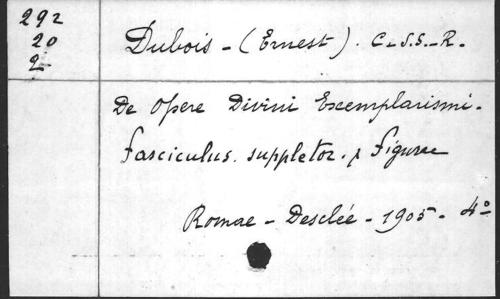 292
20
2
Dubois - (Ernest). C.S.S.-R.
De Opere Divini Exemplarismi.
fasciculus. suppletor. & Figurae
Romae - Desclée - 1905 - 4°